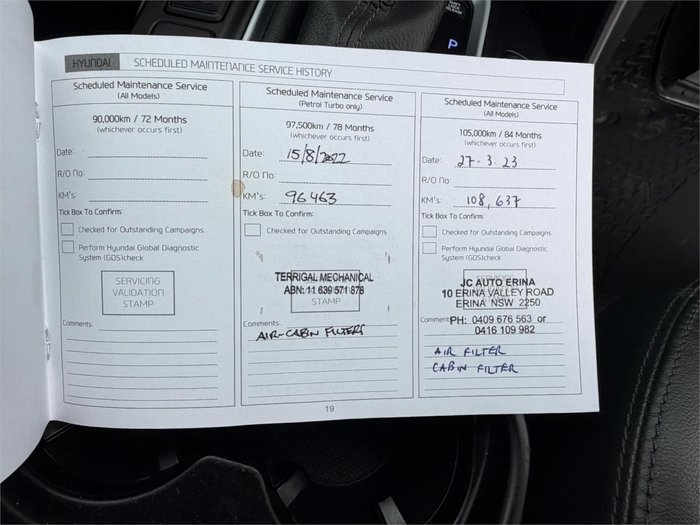 P
HYUNDAI SCHEDULED MAINTENANCE SERVICE HISTORY
Scheduled Maintenance Service
(All Models)
90,000km / 72 Months
(whichever occurs first)
Date:
R/O No:
KM's:
Tick Box To Confirm:
Checked for Outstanding Campaigns
Perform Hyundai Global Diagnostic
System (GDS)check
SERVICING
VALIDATION
STAMP
Comments:
Scheduled Maintenance Service
(Petrol Turbo only)
97,500km / 78 Months
(whichever occurs first)
Date: 15/8/2022
R/O No:
KM's: 96463
Tick Box To Confirm:
Checked for Outstanding Campaigns
TERRIGAL MECHANICAL
ABN: 11 639 571 878
STAMP
Comments:
AIR-CABIN FILTERS
Scheduled Maintenance Service
(All Models)
105,000km / 84 Months
(whichever occurs first)
Date: 27-3-23
R/O No:
KM's: 108,637
Tick Box To Confirm:
Checked for Outstanding Campaigns
Perform Hyundai Global Diagnostic
System (GDS)check
JC AUTO ERINA
10 ERINA VALLEY ROAD
ERINA NSW 2250
Comment PH: 0409 676 563 or
0416 109 982
AIR FILTER
CABIN FILTER
19